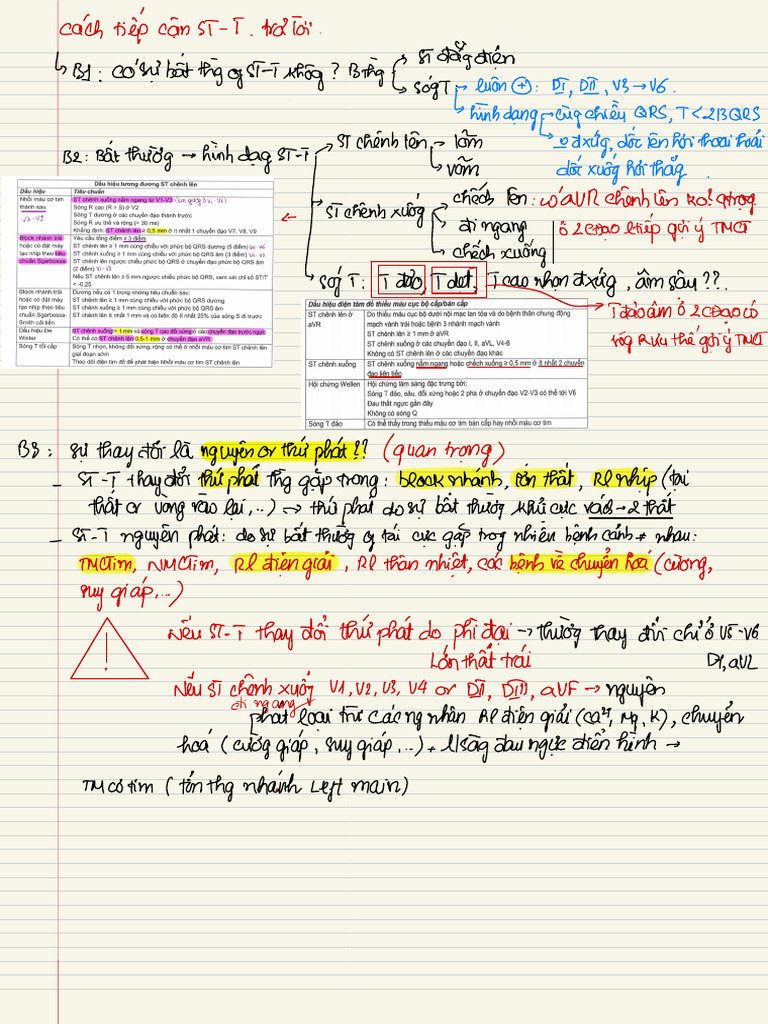 cách tiếp cận ST-T. trả lời.
↳ B1: có sự bất thg ST-T không? Bthg
ST đẳng điện
Sóng T
luôn ⊕: DI, DII, V3 → V6.
hình dạng
cùng chiều QRS, T < 2/3 QRS
đxứng, dốc lên hơi thoai thoải
dốc xuống hơi thẳng.
B2: Bất thường → hình dạg ST-T
ST chênh lên
lõm
vồm
ST chênh xuống
chếch lên: aVR chênh lên
đi ngang
ở 2 cđạo liên tiếp gợi ý TMCT
chếch xuống
Sóng T: T đảo, T dẹt, T cao nhọn đxứng, âm sâu??.
T đảo âm ở 2 cđạo có
sóng R ưu thế gợi ý TMCT
Dấu hiệu tương đương ST chênh lên
Dấu hiệu Tiêu chuẩn
Nhồi máu cơ tim thành sau
V7-V9
ST chênh xuống nằm ngang từ V1-V3
Sóng R cao (R > S) ở V2
Sóng T dương ở các chuyển đạo thành trước
Sóng R ưu thế và rộng (> 30 ms)
Khẳng định: ST chênh lên ≥ 0,5 mm ở ít nhất 1 chuyển đạo V7, V8, V9
Block nhánh trái hoặc có đặt máy tạo nhịp theo tiêu chuẩn Sgarbossa
Yêu cầu tổng điểm ≥ 3 điểm
ST chênh lên ≥ 1 mm cùng chiều với phức bộ QRS dương (5 điểm)
ST chênh xuống ≥ 1 mm cùng chiều với phức bộ QRS âm (3 điểm) V1-V3
ST chênh lên ngược chiều phức bộ QRS ở chuyển đạo phức bộ QRS âm
(2 điểm) V1-V3
Nếu ST chênh lên ≥ 5 mm ngược chiều phức bộ QRS, xem xét chỉ số ST/T
< -0.25
Block nhánh trái hoặc có đặt máy tạo nhịp theo tiêu chuẩn Sgarbossa-Smith cải tiến
Dương nếu có 1 trong những tiêu chuẩn sau:
ST chênh lên ≥ 1 mm cùng chiều với phức bộ QRS dương
ST chênh xuống ≥ 1 mm cùng chiều với phức bộ QRS âm
ST chênh lên ít nhất 1 mm và có biên độ ít nhất 25% của sóng S đi trước
Dấu hiệu De Winter
ST chênh xuống > 1 mm và sóng T cao đối xứng ở các chuyển đạo trước ngực
Có thể có ST chênh lên 0,5-1 mm ở chuyển đạo aVR
Sóng T tối cấp
Sóng T nhọn, không đối xứng, rộng có thể ở nhồi máu cơ tim ST chênh lên
giai đoạn sớm
Theo dõi điện tim đồ để phát hiện Nhồi máu cơ tim ST chênh lên
Dấu hiệu điện tâm đồ thiếu máu cục bộ cấp/bán cấp
ST chênh lên ở aVR
Do thiếu máu cục bộ dưới nội mạc lan tỏa và do bệnh thân chung động
mạch vành trái hoặc bệnh 3 nhánh mạch vành
ST chênh lên ≥ 1 mm ở aVR
ST chênh xuống ở các chuyển đạo I, II, aVL, V4-6
Không có ST chênh lên ở các chuyển đạo khác
ST chênh xuống
ST chênh xuống nằm ngang hoặc chếch xuống ≥ 0,5 mm ở ít nhất 2 chuyển
đạo liên tiếp
Hội chứng Wellen
Hội chứng lâm sàng đặc trưng bởi:
Sóng T đảo, sâu, đối xứng hoặc 2 pha ở chuyển đạo V2-V3 có thể tới V6
Đau thắt ngực gần đây
Không có sóng Q
Sóng T đảo
Có thể thấy trong thiếu máu cơ tim bán cấp hay nhồi máu cơ tim
B3: sự thay đổi là nguyên or thứ phát?? (quan trọng)
- ST-T thay đổi thứ phát thg gặp trong: block nhánh, lớn thất, Rl nhịp (tại
thất or vòng vào lại,..) → thứ phát do sự bất thường khử cực vách → 2 thất
- ST-T nguyên phát: do sự bất thường tái cực gặp trog nhiều bệnh cảnh ≠ nhau:
TMCTim, NMCTim, Rl điện giải, Rl thân nhiệt, các bệnh về chuyển hoá (cường,
suy giáp,...)
Nếu ST-T thay đổi thứ phát do phì đại → thường thay đổi chỉ ở V5-V6
lớn thất trái DI, aVL
Nếu ST chênh xuống V1, V2, V3, V4 or DII, DIII, aVF → nguyên
đi ngang
phát loại trừ các ng nhân Rl điện giải (Ca²⁺, Mg, K), chuyển
hoá (cường giáp, suy giáp,...) + lsàng đau ngực điển hình →
TM cơ tim (tổn thg nhánh Left main)